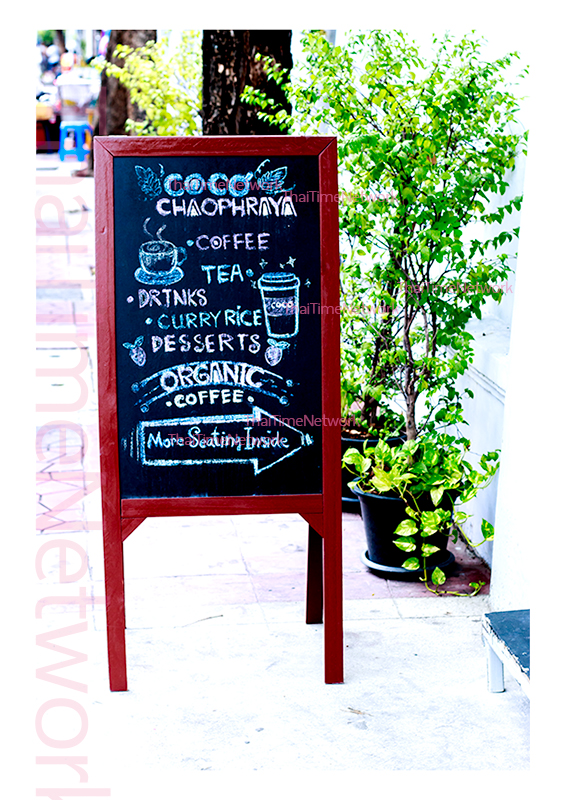 COCO
CHAOPHRAYA
• COFFEE
TEA •
• DRINKS
• CURRY RICE
DESSERTS
ORGANIC
• COFFEE •
More Seating Inside
COCO
ThaiTimeNetwork
ThaiTimeNetwork
ThaiTimeNetwork
ThaiTimeNetwork
ThaiTimeNetwork
ThaiTimeNetwork
ThaiTimeNetwork